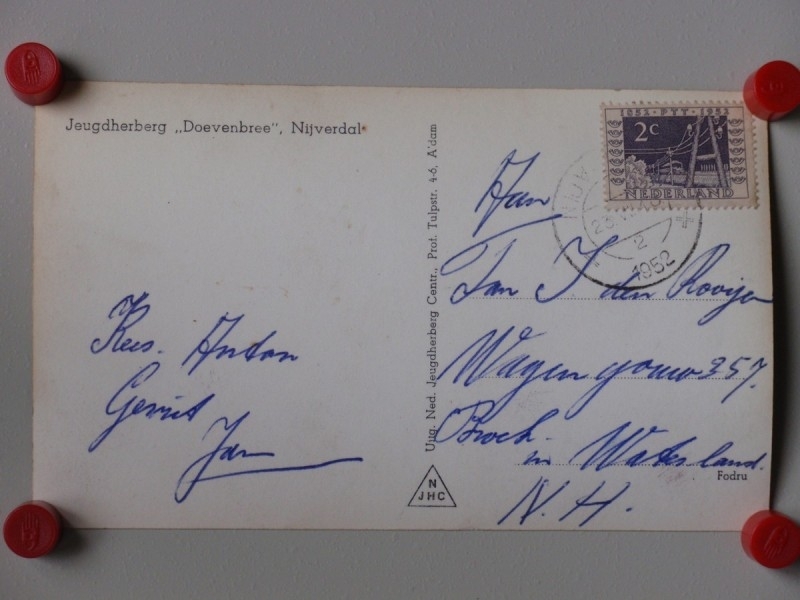 Jeugdherberg „Doevenbree", Nijverdal
Kees. Anton
Gerrit
Jan
Uitg. Ned. Jeugdherberg Centr., Prof. Tulpstr. 4-6, A'dam
N
JHC
1852 - PTT - 1952
2c
NEDERLAND
2
1952
Aan
Jan J den Rooijen
Wagengouw 357.
Broek
in Waterland.
N.H.
Fodru